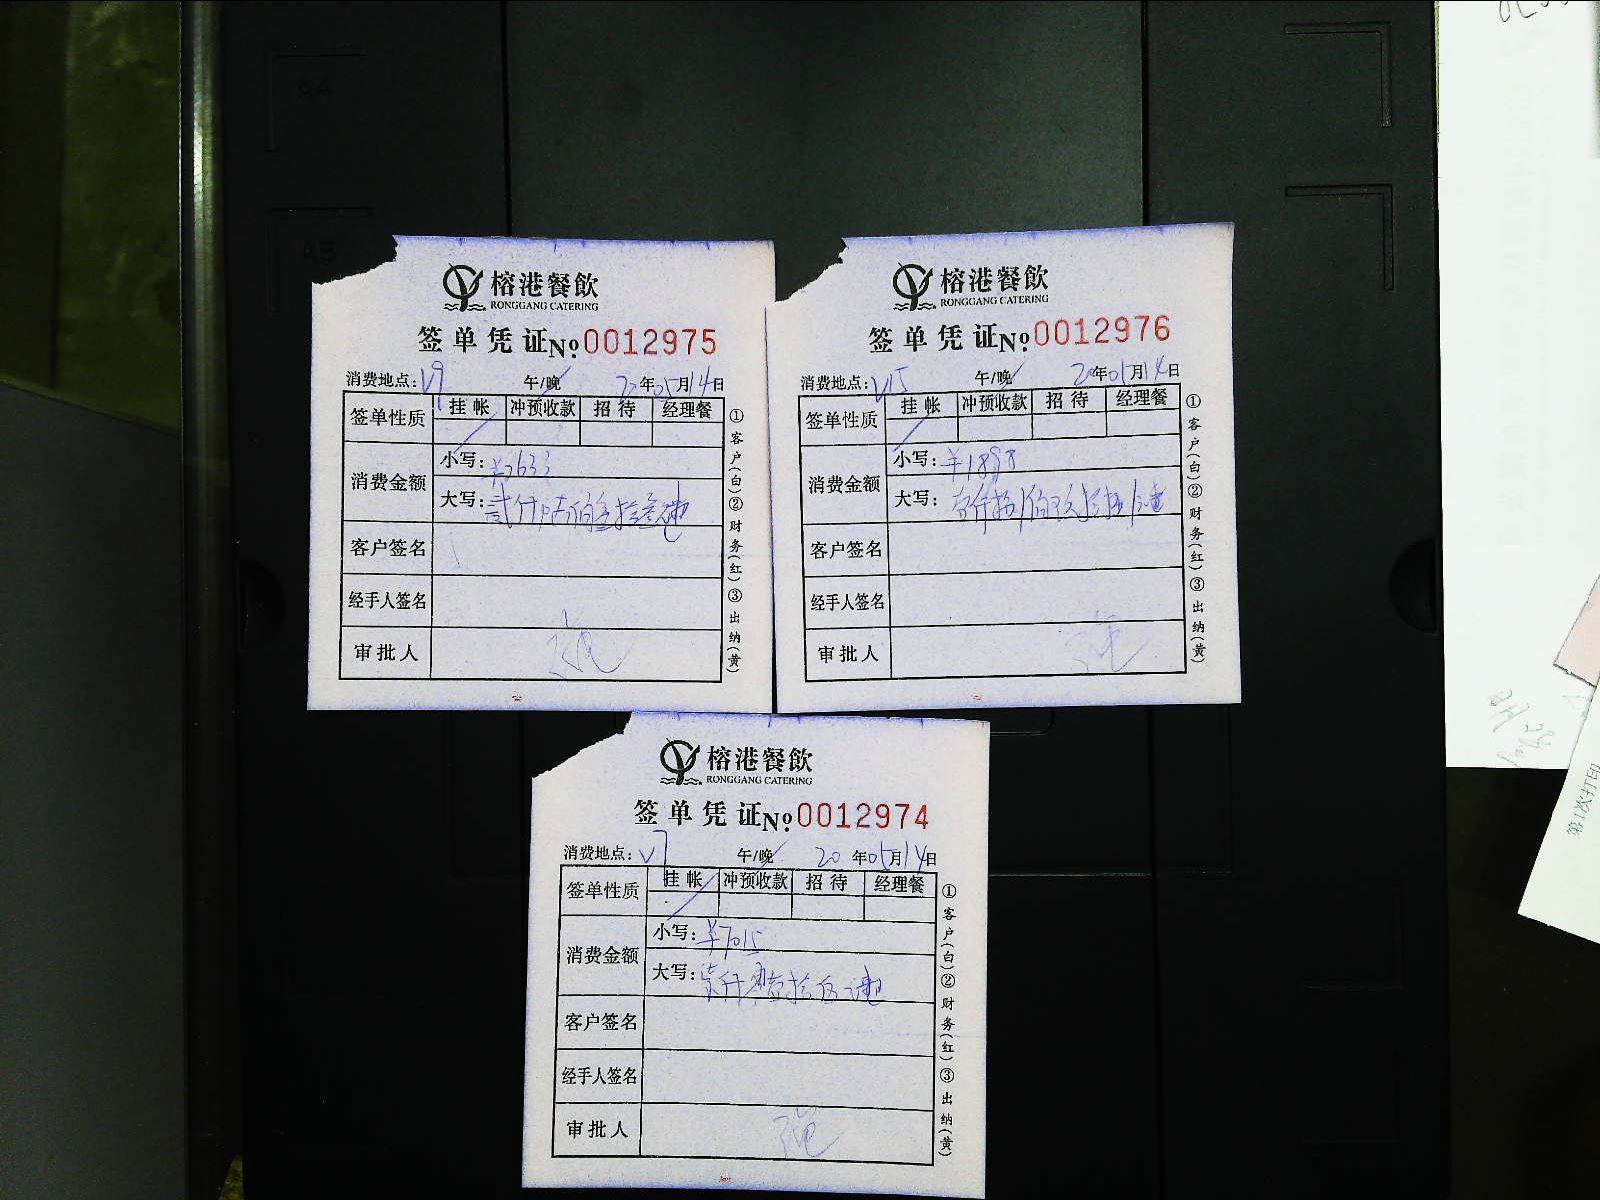 A4
A5
榕港餐飲
RONGGANG CATERING
签单凭证№0012975
消费地点: V9 午/晚 20年05月14日
签单性质 挂帐 冲预收款 招待 经理餐
消费金额 小写: ¥2633
大写: 贰仟陆佰叁拾叁元
客户签名
经手人签名
审批人
①客户(白)②财务(红)③出纳(黄)
榕港餐飲
RONGGANG CATERING
签单凭证№0012976
消费地点: V15 午/晚 20年05月14日
签单性质 挂帐 冲预收款 招待 经理餐
消费金额 小写: ¥1898
大写: 壹仟捌佰玖拾捌元
客户签名
经手人签名
审批人
①客户(白)②财务(红)③出纳(黄)
榕港餐飲
RONGGANG CATERING
签单凭证№0012974
消费地点: V7 午/晚 20年05月14日
签单性质 挂帐 冲预收款 招待 经理餐
消费金额 小写: ¥7015
大写: 柒仟零壹拾伍元
客户签名
经手人签名
审批人
①客户(白)②财务(红)③出纳(黄)
第1次打印